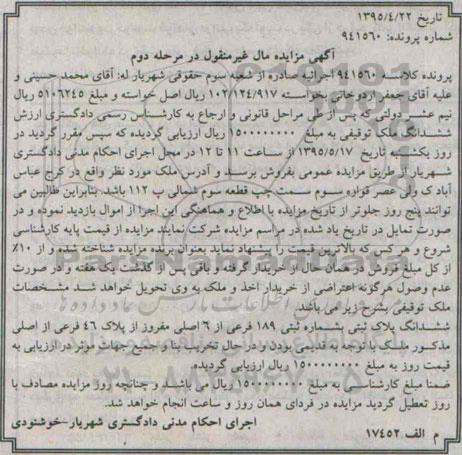 تاریخ ۱۳۹۵/۴/۲۲
شماره پرونده: ۹۴۱۵۶۰
آگهی مزایده مال غیرمنقول در مرحله دوم
پرونده کلاسه ۹۴۱۵۶۰ اجرائیه صادره از شعبه سوم حقوقی شهریار له: آقای محمد حسینی و
علیه آقای جعفر اردوخانی بخواسته ۱۰۲/۱۲۴/۹۱۷ ریال اصل خواسته و مبلغ ۵۱۰۶۲۴۵ ریال
نیم عشر دولتی که پس از طی مراحل قانونی و ارجاع به کارشناس رسمی دادگستری ارزش
ششدانگ ملک توقیفی به مبلغ ۱۵۰۰۰۰۰۰۰۰ ریال ارزیابی گردیده که سپس مقرر گردید در
روز یکشنبه تاریخ ۱۳۹۵/۵/۱۷ از ساعت ۱۱ تا ۱۲ در محل اجرای احکام مدنی دادگستری
شهریار از طریق مزایده عمومی بفروش برسد و آدرس ملک مورد نظر واقع در کرج عباس
آباد ک ولی عصر قواره سوم سمت چپ قطعه سوم شمالی پ ۱۱۲ باشد. بنابراین طالبین می
توانند پنج روز جلوتر از تاریخ مزایده با اطلاع و هماهنگی این اجرا از اموال بازدید نموده و در
صورت تمایل در تاریخ یاد شده در مراسم مزایده شرکت نمایند مزایده از قیمت پایه کارشناسی
شروع و هر کس که بالاترین قیمت را پیشنهاد نماید بعنوان برنده مزایده شناخته شده و از ۱۰٪
از کل مبلغ فروش در همان حال از خریدار گرفته و باقی پس از گذشت یک هفته و در صورت
عدم وصول هرگونه اعتراضی از خریدار اخذ و ملک به وی تحویل خواهد شد مشخصات
ملک توقیفی بشرح زیر می باشد.
ششدانگ پلاک ثبتی بشماره ثبتی ۱۸۹ فرعی از ۶ اصلی مفروز از پلاک ۴۶ فرعی از اصلی
مذکور ملک با توجه به قدیمی بودن و در حال تخریب بنا و جمیع جهات موثر در ارزیابی به
قیمت روز به مبلغ ۱۵۰۰۰۰۰۰۰۰ ریال ارزیابی گردیده
ضمنا مبلغ کارشناسی به مبلغ ۱۵۰۰۰۰۰۰۰۰ ریال می باشد و چنانچه روز مزایده مصادف با
روز تعطیل گردید مزایده در فردای همان روز و ساعت انجام خواهد شد.
اجرای احکام مدنی دادگستری شهریار-خوشنودی
م الف ۱۷۴۵۲
ParsNamadData